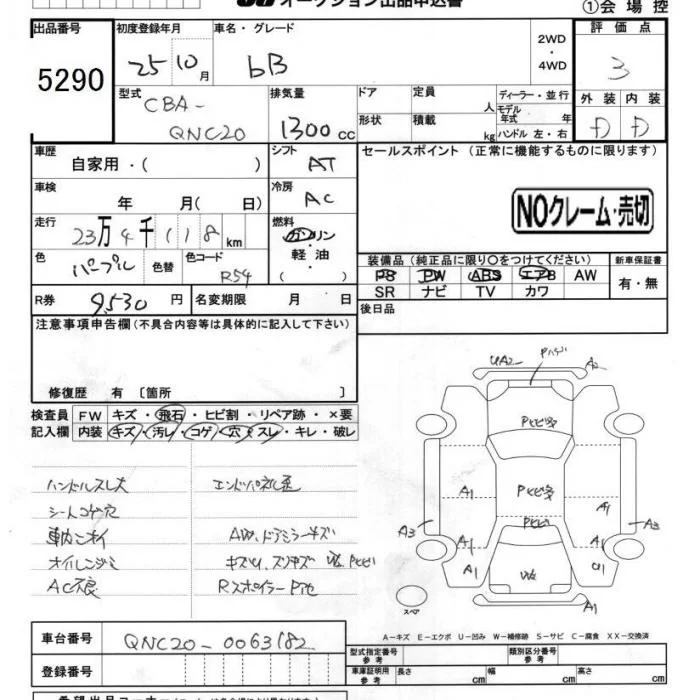 オークション出品申込書
①会場控
出品番号
5290
初度登録年月
25 10 月
車名・グレード
bB
2WD
・
4WD
評価点
3
外装 内装
D D
型式
CBA-
QNC20
排気量
1300 cc
ドア
定員
人
形状
積載
kg
ディーラー・並行
モデル年式 年
ハンドル 左・右
車歴
自家用・( )
シフト
AT
セールスポイント (正常に機能するものに限ります)
車検
年 月( 日)
冷房
AC
NOクレーム・売切
走行
23万4千118 km
燃料
ガソリン
・
軽油
・
( )
色
パープル
色替
色コード
R54
装備品 (純正品に限り○をつけてください)
PS PW ABS エアB AW
SR ナビ TV カワ
新車保証書
有・無
R券
9,530 円
名変期限 月 日
後日品
注意事項申告欄(不具合内容等は具体的に記入して下さい)
修復歴 有 〔箇所 〕
検査員
記入欄
FW キズ・飛石・ヒビ割・リペア跡・×要
内装 キズ・汚レ・コゲ・穴・スレ・キレ・破レ
ハンドルスレ大
シートコゲ穴
車内ニオイ
オイルニジミ
AC不良
AW、ドアミラーキズ
UA2
Pハゲ
A2
Pヒビ多
A1
Pヒビ多
A1
Pヒビ
A3
A3
A1
A1
A1
U1
W2
A1
スペア
A-キズ E-エクボ U-凹み W-補修跡 S-サビ C-腐食 XX-交換済
車台番号
QNC20-0063182
登録番号
型式指定番号
参考
類別区分番号
参考
車庫証明用
参考
長さ cm
幅 cm
高さ cm